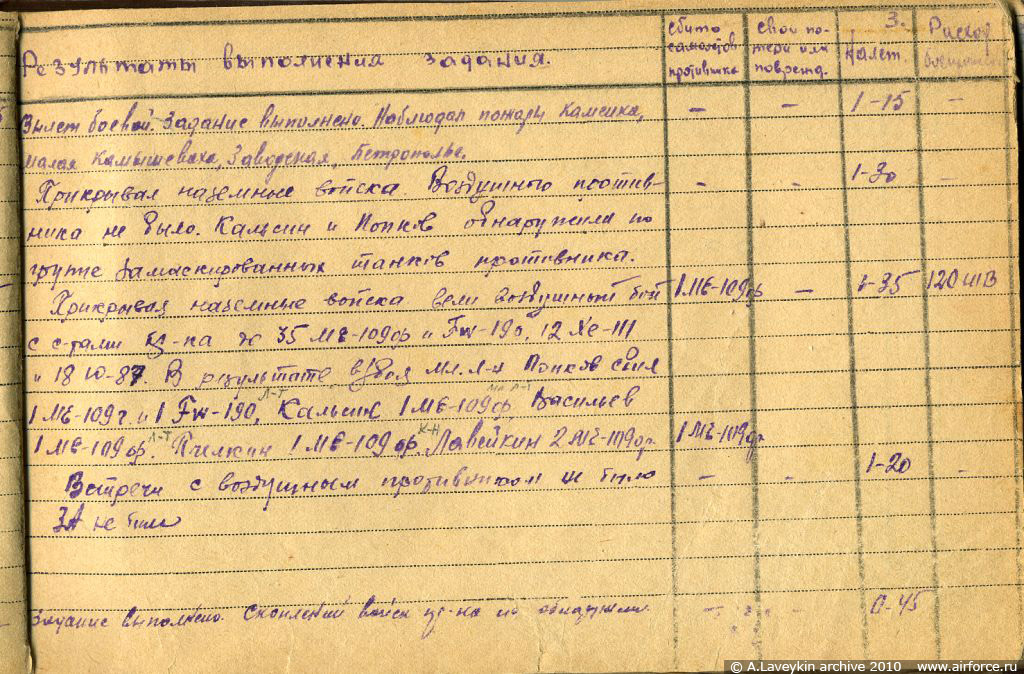 Результаты выполнения задания.
сбито самолётов противника
свои потери или поврежд.
3.
Налет.
Расход
Вылет боевой. Задание выполнено. Наблюдал пожары Каменка, — — 1-15 —
малая Камышеваха, Заводская, Петрополье.
Прикрывал наземные войска. Воздушного против- — — 1-30 —
ника не было. Кальсин и Попков обнаружили по
группе замаскированных танков противника.
Прикрывая наземные войска вели воздушный бой 1 МЕ-109ф — 1-35 120 шв
с с-тами пр-ка до 35 МЕ-109ф и Fw-190, 12 Хе-111
и 18 Ю-87. В результате в/боя мл. л-т Попков сбил
л-т мл л-т
1 МЕ-109г. и 1 Fw-190, Кальсин 1 МЕ-109ф Васильев
л-т к-н
1 МЕ-109ф. Пчелкин 1 МЕ-109ф. Лавейкин 2 МЕ-109ф. 1 МЕ-109ф
Встречи с воздушным противником не было — — 1-20 —
ЗА не била
Задание выполнено. Скоплений войск пр-ка не обнаружил. — — 0-45
© A.Laveykin archive 2010 www.airforce.ru